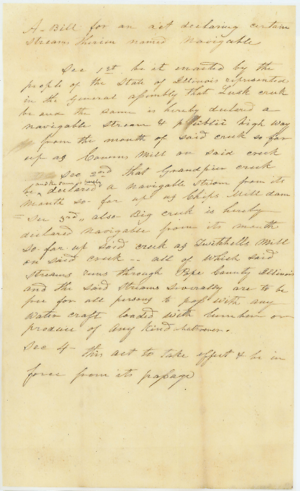 A Bill for an act declaring certain
Stream therein named Navigable
Sec 1st be it enacted by the
people of the State of Illinois represented
in the General assembly that Lusk creek
be and the same is hereby declard a
navigable stream & publick high way
from the mouth of said creek so far
up as Cowens Mill on said creek
Sec 2nd that Grandpier creek
be declared a navigable Stream from its
mouth so far up as Ships Mill dam
Sec 3rd also Big creek is hereby
declared navigable from its mouth
so far up said creek as Twitchells Mill
on said creek -- all of which said
streams runs through Pope County Illinois
and the said Streams Severally are to be
free for all persons to pass with any
water craft loaded with lumber or
produce of any Kind
Sec 4 this act to take effect & be in
force from its passage